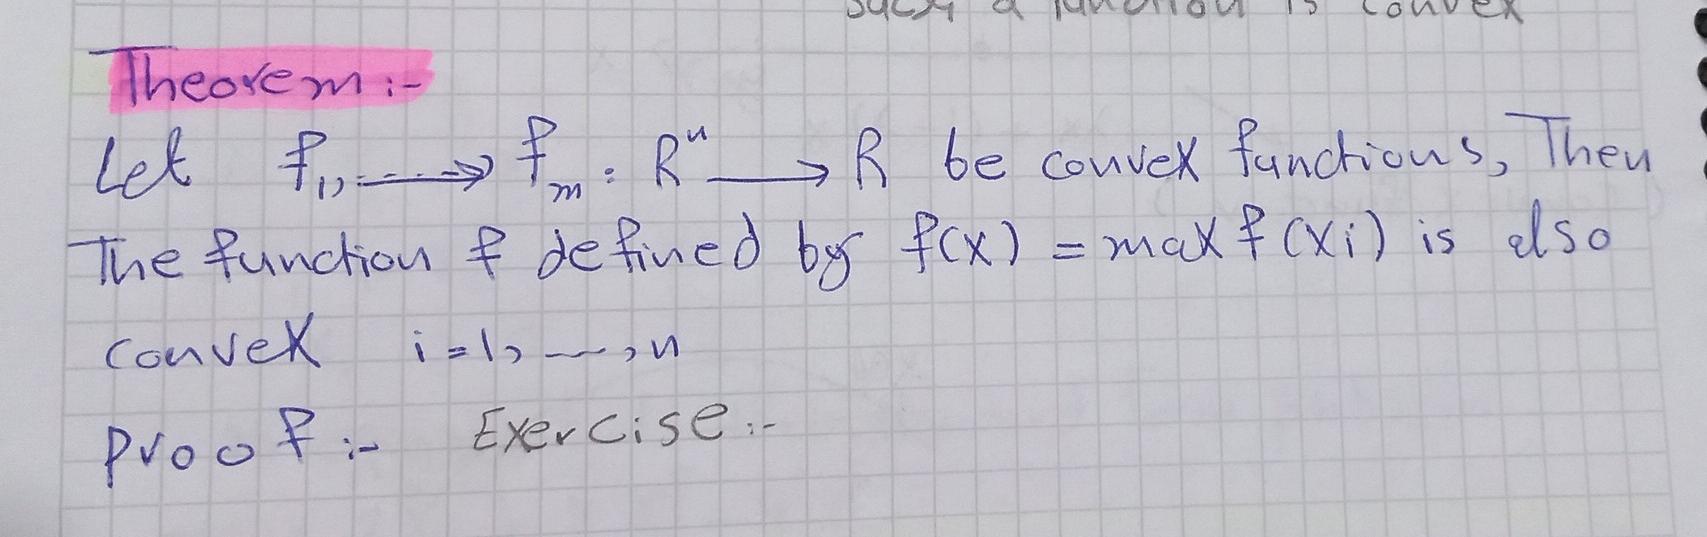 such a function is convex
Theorem :-
Let f₁,, ---→ fₘ : Rⁿ → R be convex functions, Then
The function f defined by f(x) = max f(xi) is also
convex i=1, ---, n
Proof :- Exercise :-